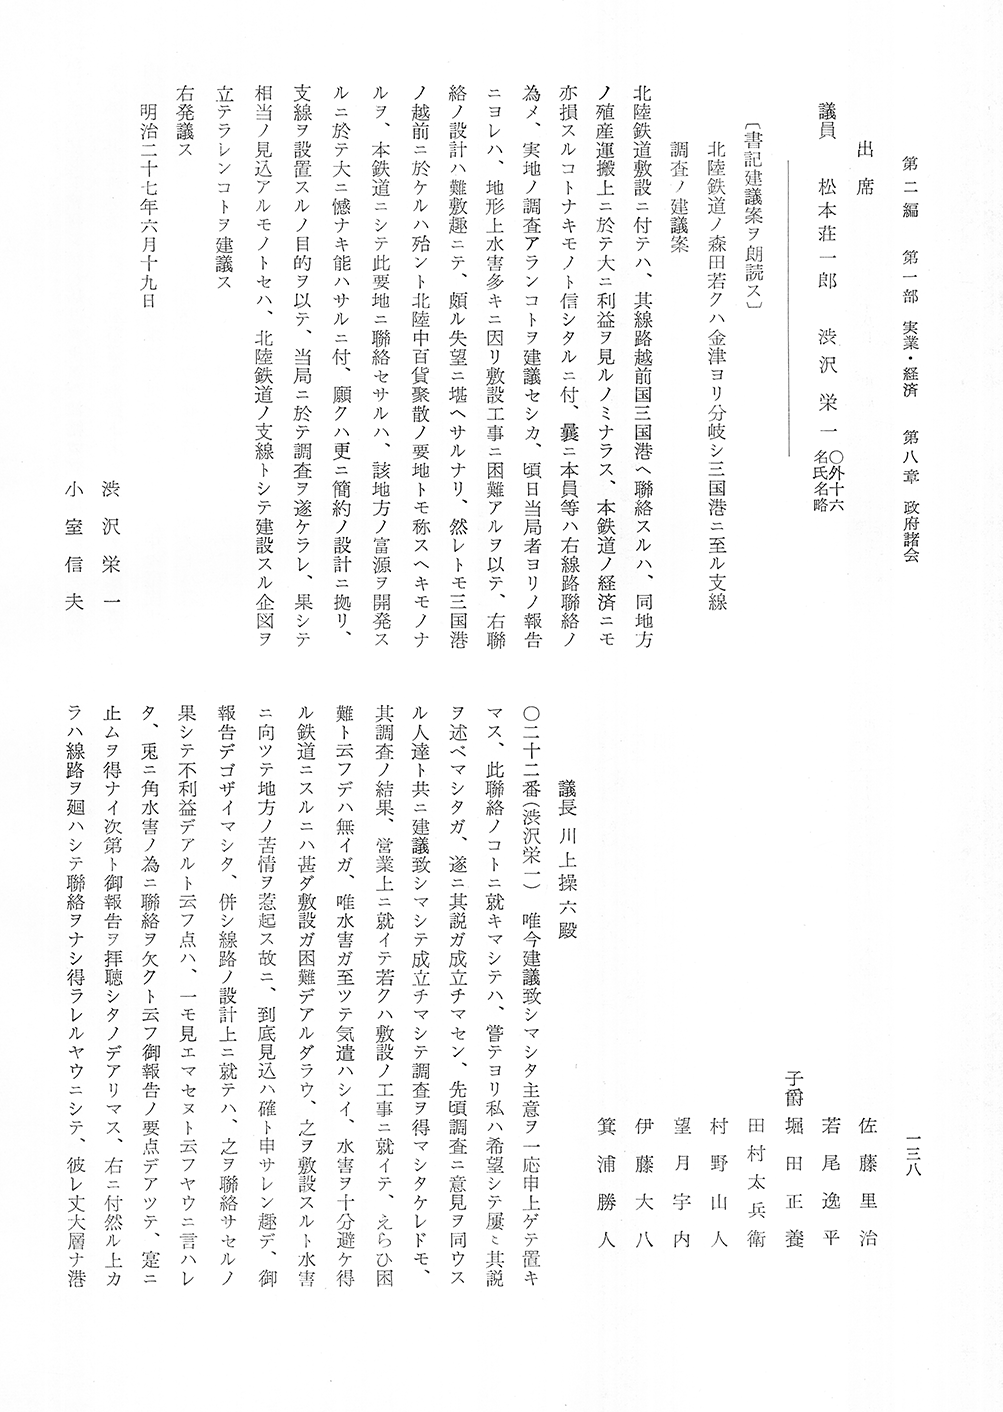 第二編 第一部 実業・経済 第八章 政府諸会
一三八
出席
議員 松本荘一郎 渋沢栄一 〇外十六名氏名略
〔書記建議案ヲ朗読ス〕
北陸鉄道ノ森田若クハ金津ヨリ分岐シ三国港ニ至ル支線
調査ノ建議案
北陸鉄道敷設ニ付テハ、其線路越前国三国港ヘ聯絡スルハ、同地方
ノ殖産運搬上ニ於テ大ニ利益ヲ見ルノミナラス、本鉄道ノ経済ニモ
亦損スルコトナキモノト信シタルニ付、曩ニ本員等ハ右線路聯絡ノ
為メ、実地ノ調査アランコトヲ建議セシカ、頃日当局者ヨリノ報告
ニヨレハ、地形上水害多キニ因リ敷設工事ニ困難アルヲ以テ、右聯
絡ノ設計ハ難敷趣ニテ、頗ル失望ニ堪ヘサルナリ、然レトモ三国港
ノ越前ニ於ケルハ殆ント北陸中百貨聚散ノ要地トモ称スヘキモノナ
ルヲ、本鉄道ニシテ此要地ニ聯絡セサルハ、該地方ノ富源ヲ開発ス
ルニ於テ大ニ憾ナキ能ハサルニ付、願クハ更ニ簡約ノ設計ニ拠リ、
支線ヲ設置スルノ目的ヲ以テ、当局ニ於テ調査ヲ遂ケラレ、果シテ
相当ノ見込アルモノトセハ、北陸鉄道ノ支線トシテ建設スル企図ヲ
立テラレンコトヲ建議ス
右発議ス
明治二十七年六月十九日
渋沢栄一
小室信夫
佐藤里治
若尾逸平
子爵 堀田正養
田村太兵衛
村野山人
望月宇内
伊藤大八
箕浦勝人
議長 川上操六殿
〇二十二番(渋沢栄一) 唯今建議致シマシタ主意ヲ一応申上ゲテ置キ
マス、此聯絡ノコトニ就キマシテハ、嘗テヨリ私ハ希望シテ屢〻其説
ヲ述ベマシタガ、遂ニ其説ガ成立チマセン、先頃調査ニ意見ヲ同ウス
ル人達ト共ニ建議致シマシテ成立チマシテ調査ヲ得マシタケレドモ、
其調査ノ結果、営業上ニ就イテ若クハ敷設ノ工事ニ就イテ、えらひ困
難ト云フデハ無イガ、唯水害ガ至ツテ気遣ハシイ、水害ヲ十分避ケ得
ル鉄道ニスルニハ甚ダ敷設ガ困難デアルダラウ、之ヲ敷設スルト水害
ニ向ツテ地方ノ苦情ヲ惹起ス故ニ、到底見込ハ確ト申サレン趣デ、御
報告デゴザイマシタ、併シ線路ノ設計上ニ就テハ、之ヲ聯絡サセルノ
果シテ不利益デアルト云フ点ハ、一モ見エマセヌト云フヤウニ言ハレ
タ、兎ニ角水害ノ為ニ聯絡ヲ欠クト云フ御報告ノ要点デアツテ、寔ニ
止ムヲ得ナイ次第ト御報告ヲ拝聴シタノデアリマス、右ニ付然ル上カ
ラハ線路ヲ廻ハシテ聯絡ヲナシ得ラレルヤウニシテ、彼レ丈大層ナ港